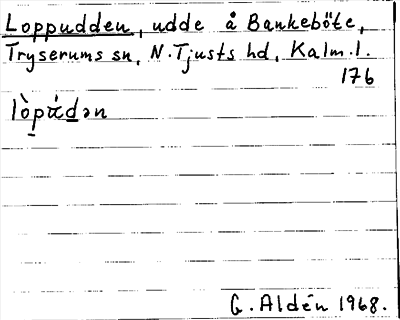 Loppudden, udde å Bankeböte,
Tryserums sn, N. Tjusts hd, Kalm. l.
176
lòpʉ́dən
G. Aldén 1968.